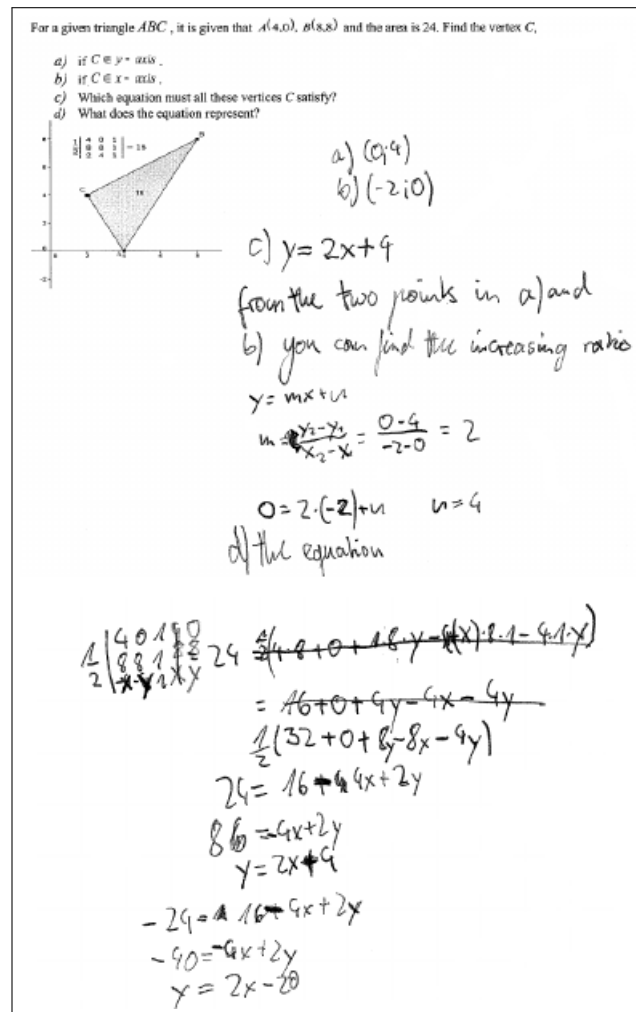 For a given triangle ABC, it is given that A(4,0), B(8,8) and the area is 24. Find the vertex C,
a) if C ∈ y - axis.
b) if C ∈ x - axis.
c) Which equation must all these vertices C satisfy?
d) What does the equation represent?
B
C
16
A
a) (0;4)
b) (-2;0)
c) y = 2x+4
from the two points in a) and
b) you can find the increasing ratio
y = mx+n
m = y2-y1 / x2-x1 = 0-4 / -2-0 = 2
0 = 2·(-2)+n n=4
d) the equation
1/2 | 4 0 1 | 4 0
8 8 1 | 8 8
x y 1 | x y = 24
1/2(32+0+8y-8x-4y)
24 = 16-4x+2y
8 = -4x+2y
y = 2x+4
-24 = 16-4x+2y
-40 = -4x+2y
y = 2x-20